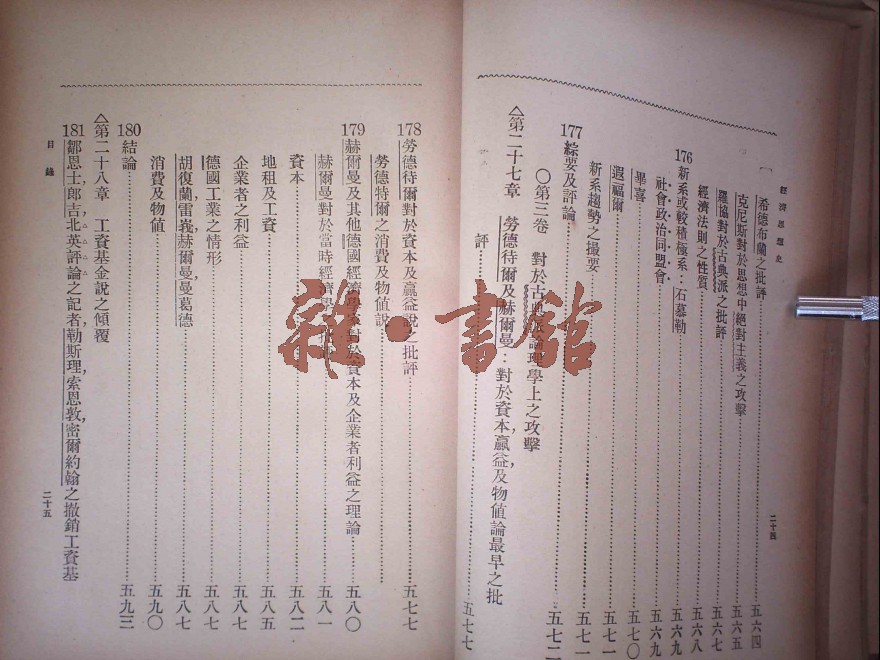 經濟思想史
希德布蘭之批評 五六四
克尼斯對於思想中絕對主義之攻擊 五六五
羅協對於古典派之批評 五六七
經濟法則之性質 五六八
176 新系或較積極系：石慕勒 五六九
社會政治同盟會 五六九
畢喜 五七〇
遐福爾 五七一
新系趨勢之撮要 五七一
177 綜要及評論 五七二
〇第三卷 對於古典派論理學上之攻擊
△第二十七章 勞德待爾及赫爾曼：對於資本，贏益及物值論最早之批
評 五七七
二十四
178 勞德待爾對於資本及贏益說之批評 五七七
勞德特爾之消費及物值說
179 赫爾曼及其他德國經濟學家對於資本及企業者利益之理論 五八〇
赫爾曼對於當時經濟學 五八一
資本 五八二
地租及工資 五八五
企業者之利益 五八七
德國工業之情形 五八七
胡復蘭，雷義，赫爾曼，曼葛德 五八七
消費及物值 五九〇
180 結論 五九三
△第二十八章 工資基金說之傾覆
181 鄒恩士，郎吉，北英評論之記者，勒斯理，索恩敦，密爾約翰之撤銷工資基
目錄
二十五
雜·書館